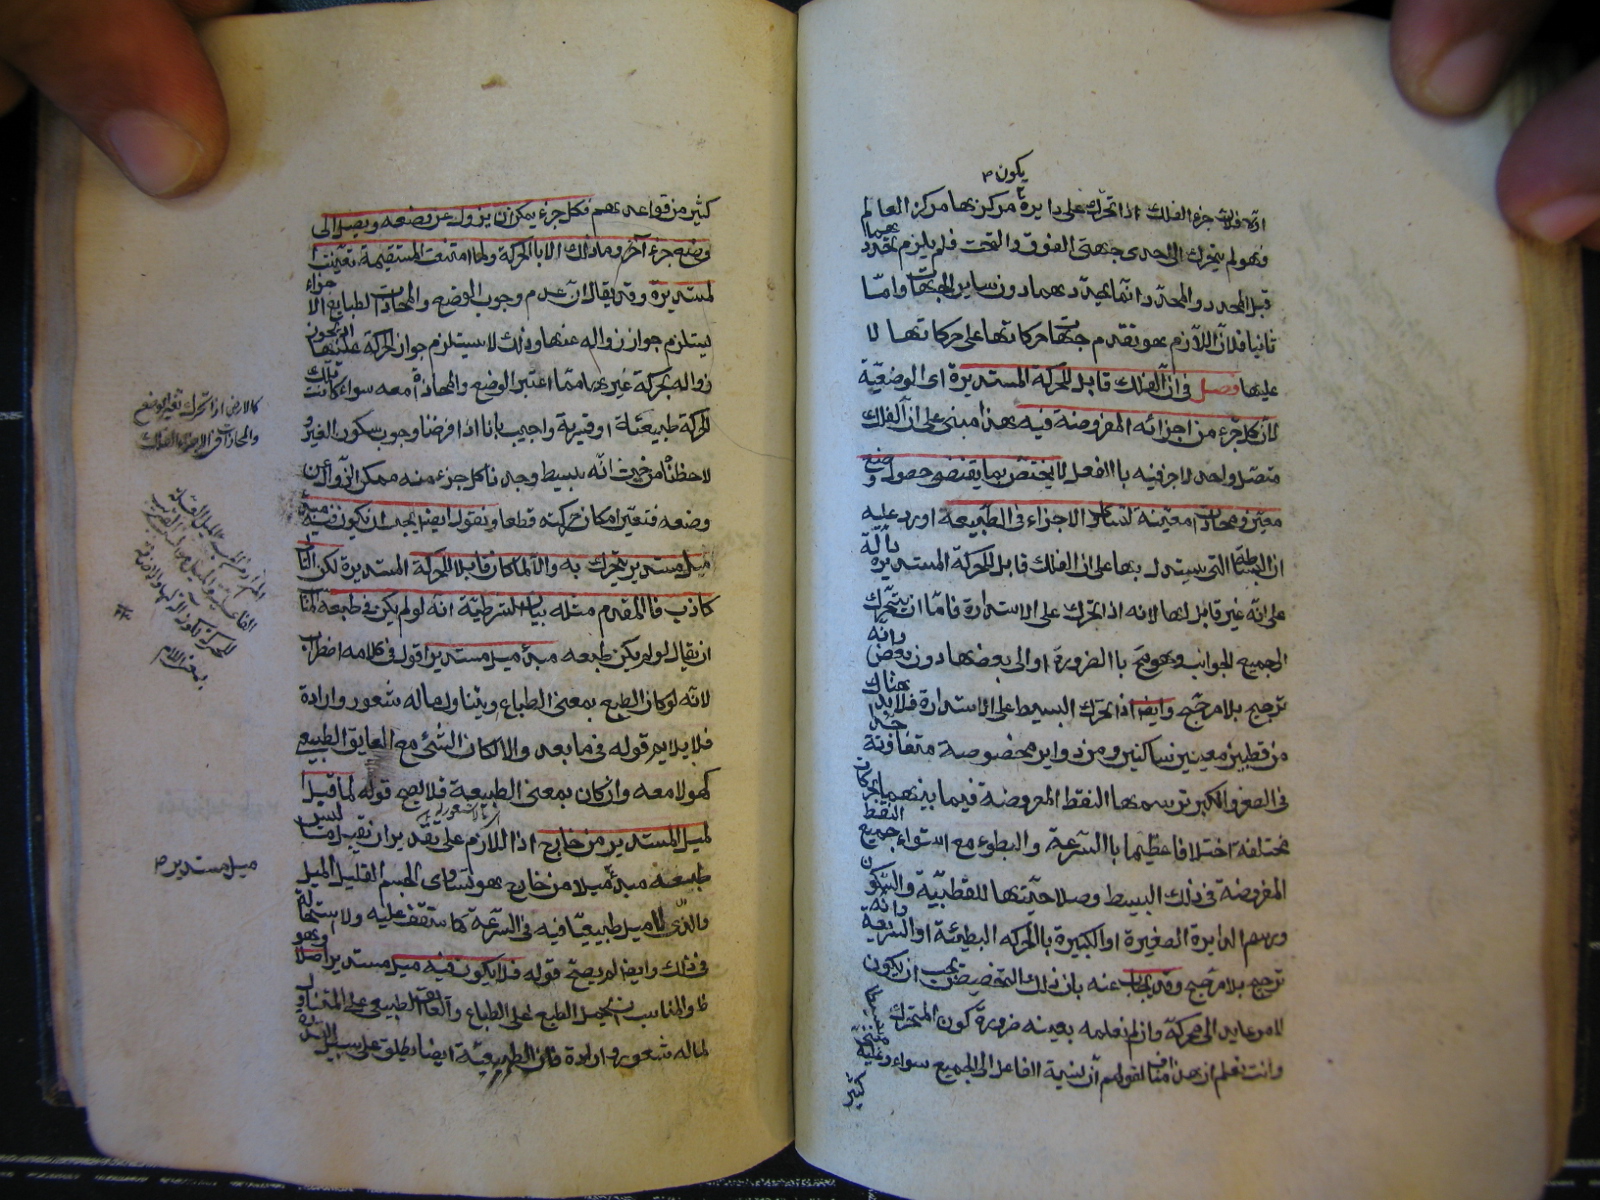 يكون
اولا فلان جزء الفلك اذا تحرك على دايرة مركزها مركز العالم
فهو لم يتحرك الى احدى جهتى الفوق والتحت فلم يلزم تحدد
هما
قبل المحدد والمحدد انما يحدد هما دون ساير الجهات واما
ثانيا فلان اللازم هو تقدم جهات حركاتها على حركاتها لا
عليها فصل فى ان الفلك قابل للحركة المستديرة اى الوضعية
لان كل جزء من اجزائه المفروضة فيه هذا مبنى على ان الفلك
متصل واحد لا جزء فيه بالفعل لا يختص بما يقتضى حصول وضع
معين ومحاذات معينة لتساوى الاجزاء فى الطبيعة اورد عليه
ان البساطة التى يستدل بها على ان الفلك قابل للحركة المستديرة دالة
على انه غير قابل لها لانه اذا تحرك على الاستدارة فاما ان يتحرك
الى جميع الجوانب وهو مح بالضرورة او الى بعضها دون بعض وانه
ترجيح بلا مرجح وايضا اذا تحرك البسيط على الاستدارة فلا بد هناك
من قطبين معينين ساكنين ومن دواير مخصوصة متفاوتة جدا
فى الصغر والكبر ترسمها النقط المفروضة فيما بينهما بحركات
مختلفة اختلافا عظيما بالسرعة والبطوء مع استواء جميع النقط
المفروضة فى ذلك البسيط وصلاحيتها للقطبية والسكون
ورسم الدايرة الصغيرة او الكبيرة بالحركة البطيئة او السريعة وانه
ترجيح بلا مرجح وقد يجاب عنه بان ذلك التخصيص يجب ان يكون
لامر عايد الى محركه وان لم نعلمه بعينه ضرورة كون المتحرك بسيطا
وانت تعلم ان هذا مناف لقولهم ان نسبة الفاعل الى الجميع سواء وعليه
كثير
كثير من قواعدهم فكل جزء يمكن ان يزول عن وضعه ويصل الى
وضع جزء آخر وما ذلك الا بالحركة ولما امتنعت المستقيمة تعينت ا
لمستديرة وقد يقال ان عدم وجوب الوضع والمحاذات لطبايع الاجزاء
يستلزم جواز زواله عنها وذلك لا يستلزم جواز الحركة عليها لجواز
زواله بحركة غيرها مما اعتبر الوضع والمحاذاة معه سواء كانت تلك
الحركة طبيعية او قسرية واجيب بانا اذا فرضنا وجوب سكون الغير و
لاحظناه من حيث انه بسيط وجدنا كل جزء منه ممكن الزوال عن
وضعه فتعين امكان حركته قطعا ونقول ايضا يجب ان يكون فيه مبدأ
ميل مستدير يتحرك به والا لما كان قابلا للحركة المستديرة لكن التالى
كاذب فالمقدم مثله بيان الشرطية انه لو لم يكن فى طبيعة
ان يقال لو لم يكن طبيعه مبدأ ميل مستدير اقول فى كلامه اضطراب
لانه لو كان الطبع بمعنى الطباع ويتناول ماله شعور وارادة
فلا يلايم قوله فى ما بعد والا لكان الشئ مع العايق الطبيعى
كهو لا معه وان كان بمعنى الطبيعة فلا يصح قوله لما قبل ا
لميل المستدير من خارج اذ اللازم على تقدير ان نقبل ما ليس
طبيعه مبدأ ميلا من خارج هو تساوى الجسم القليل الميل
والذى لا ميل طبيعيا فيه فى السرعة كما ستقف عليه ولا استحالة
فى ذلك وايضا لم يصح قوله فلا يكون فيه ميل مستدير اصلا وهو
ظ والمناسب ان يحمل الطبع على الطباع والعايق الطبيعى على المتناول
لما له شعور وارادة فان الطبيعية ايضا يطلق على سبيل الندرة
كالارض اذا تحرك تغير الوضع
والمحاذات
ميل مستدير